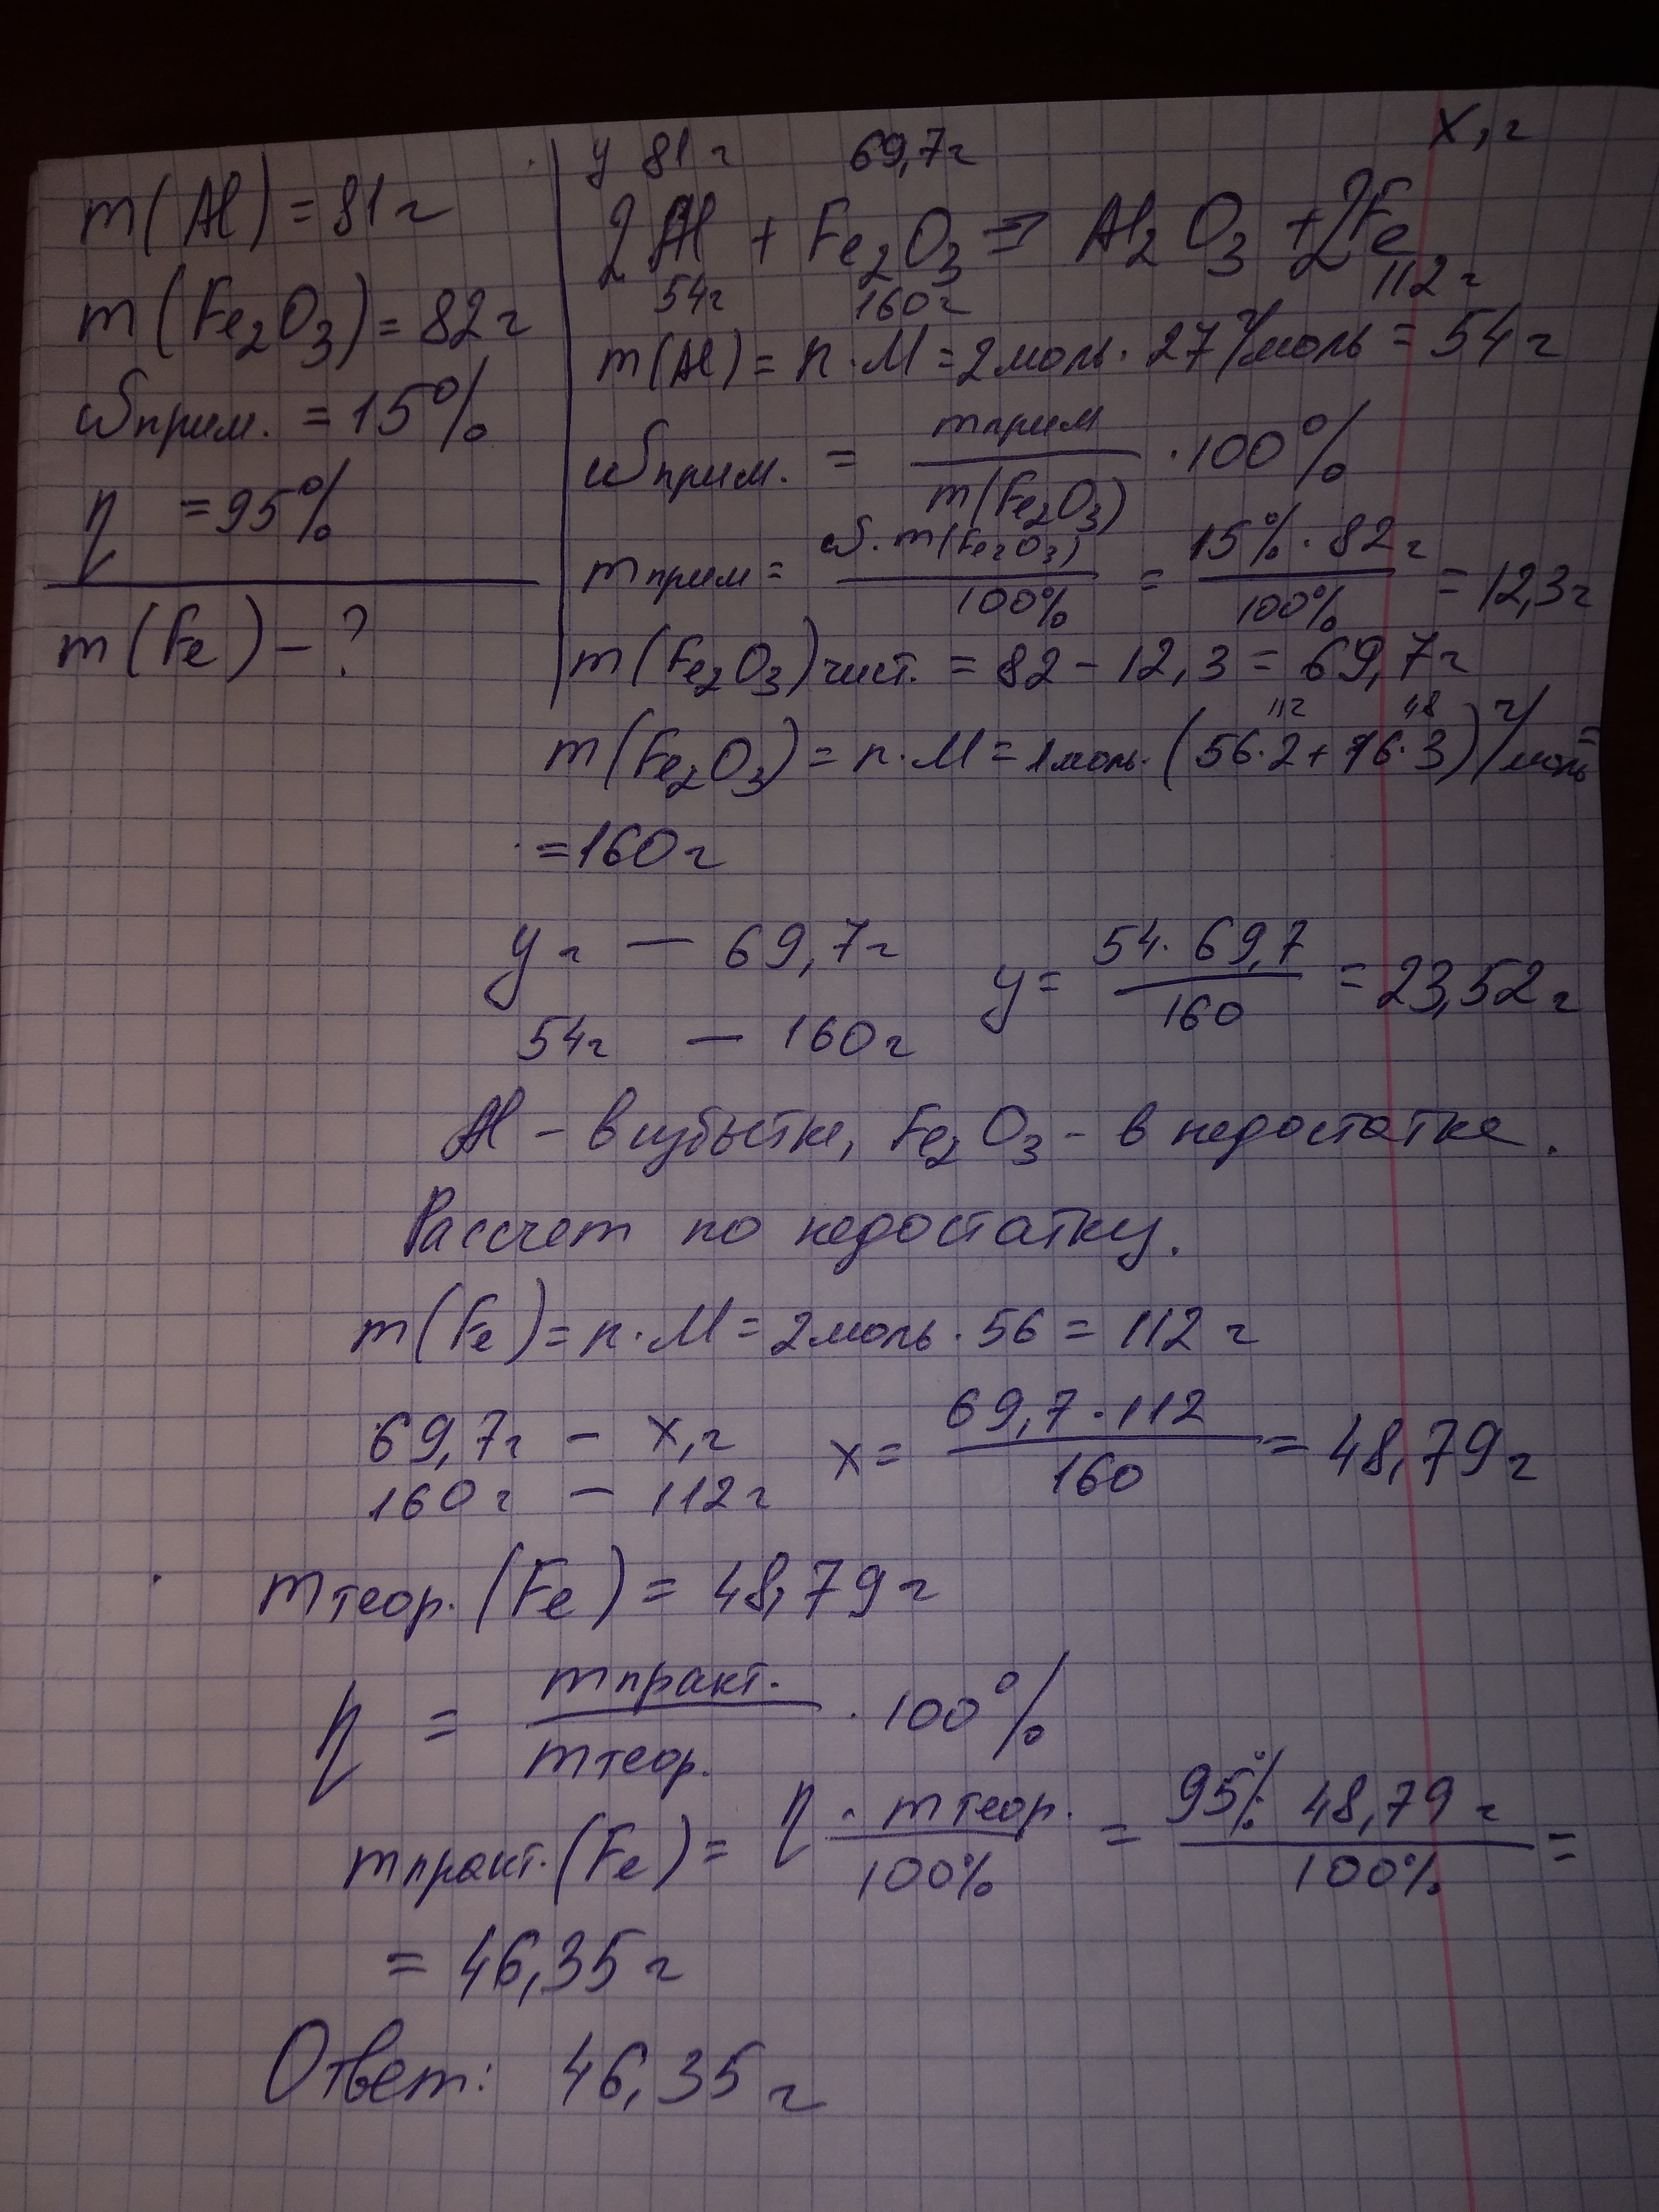 m(Al) = 81г
m(Fe2O3) = 82г
ωприм. = 15%
η = 95%
m(Fe) - ?
у 81г 69,7г х,г
2Al + Fe2O3 => Al2O3 + 2Fe
54г 160г 112г
m(Al) = n·M = 2моль · 27г/моль = 54г
ωприм. = mприм / m(Fe2O3) · 100%
mприм = ω·m(Fe2O3) / 100% = 15%·82г / 100% = 12,3г
m(Fe2O3)чист. = 82 - 12,3 = 69,7г
112 48
m(Fe2O3) = n·M = 1моль·(56·2+16·3)г/моль =
= 160г
уг — 69,7г у = 54·69,7 / 160 = 23,52г
54г — 160г
Al - в избытке, Fe2O3 - в недостатке.
Рассчет по недостатку.
m(Fe) = n·M = 2моль·56 = 112г
69,7г - х,г х = 69,7·112 / 160 = 48,79г
160г - 112г
mтеор.(Fe) = 48,79г
η = mпракт. / mтеор. · 100%
mпракт.(Fe) = η · mтеор. / 100% = 95%· 48,79г / 100% =
= 46,35г
Ответ: 46,35г